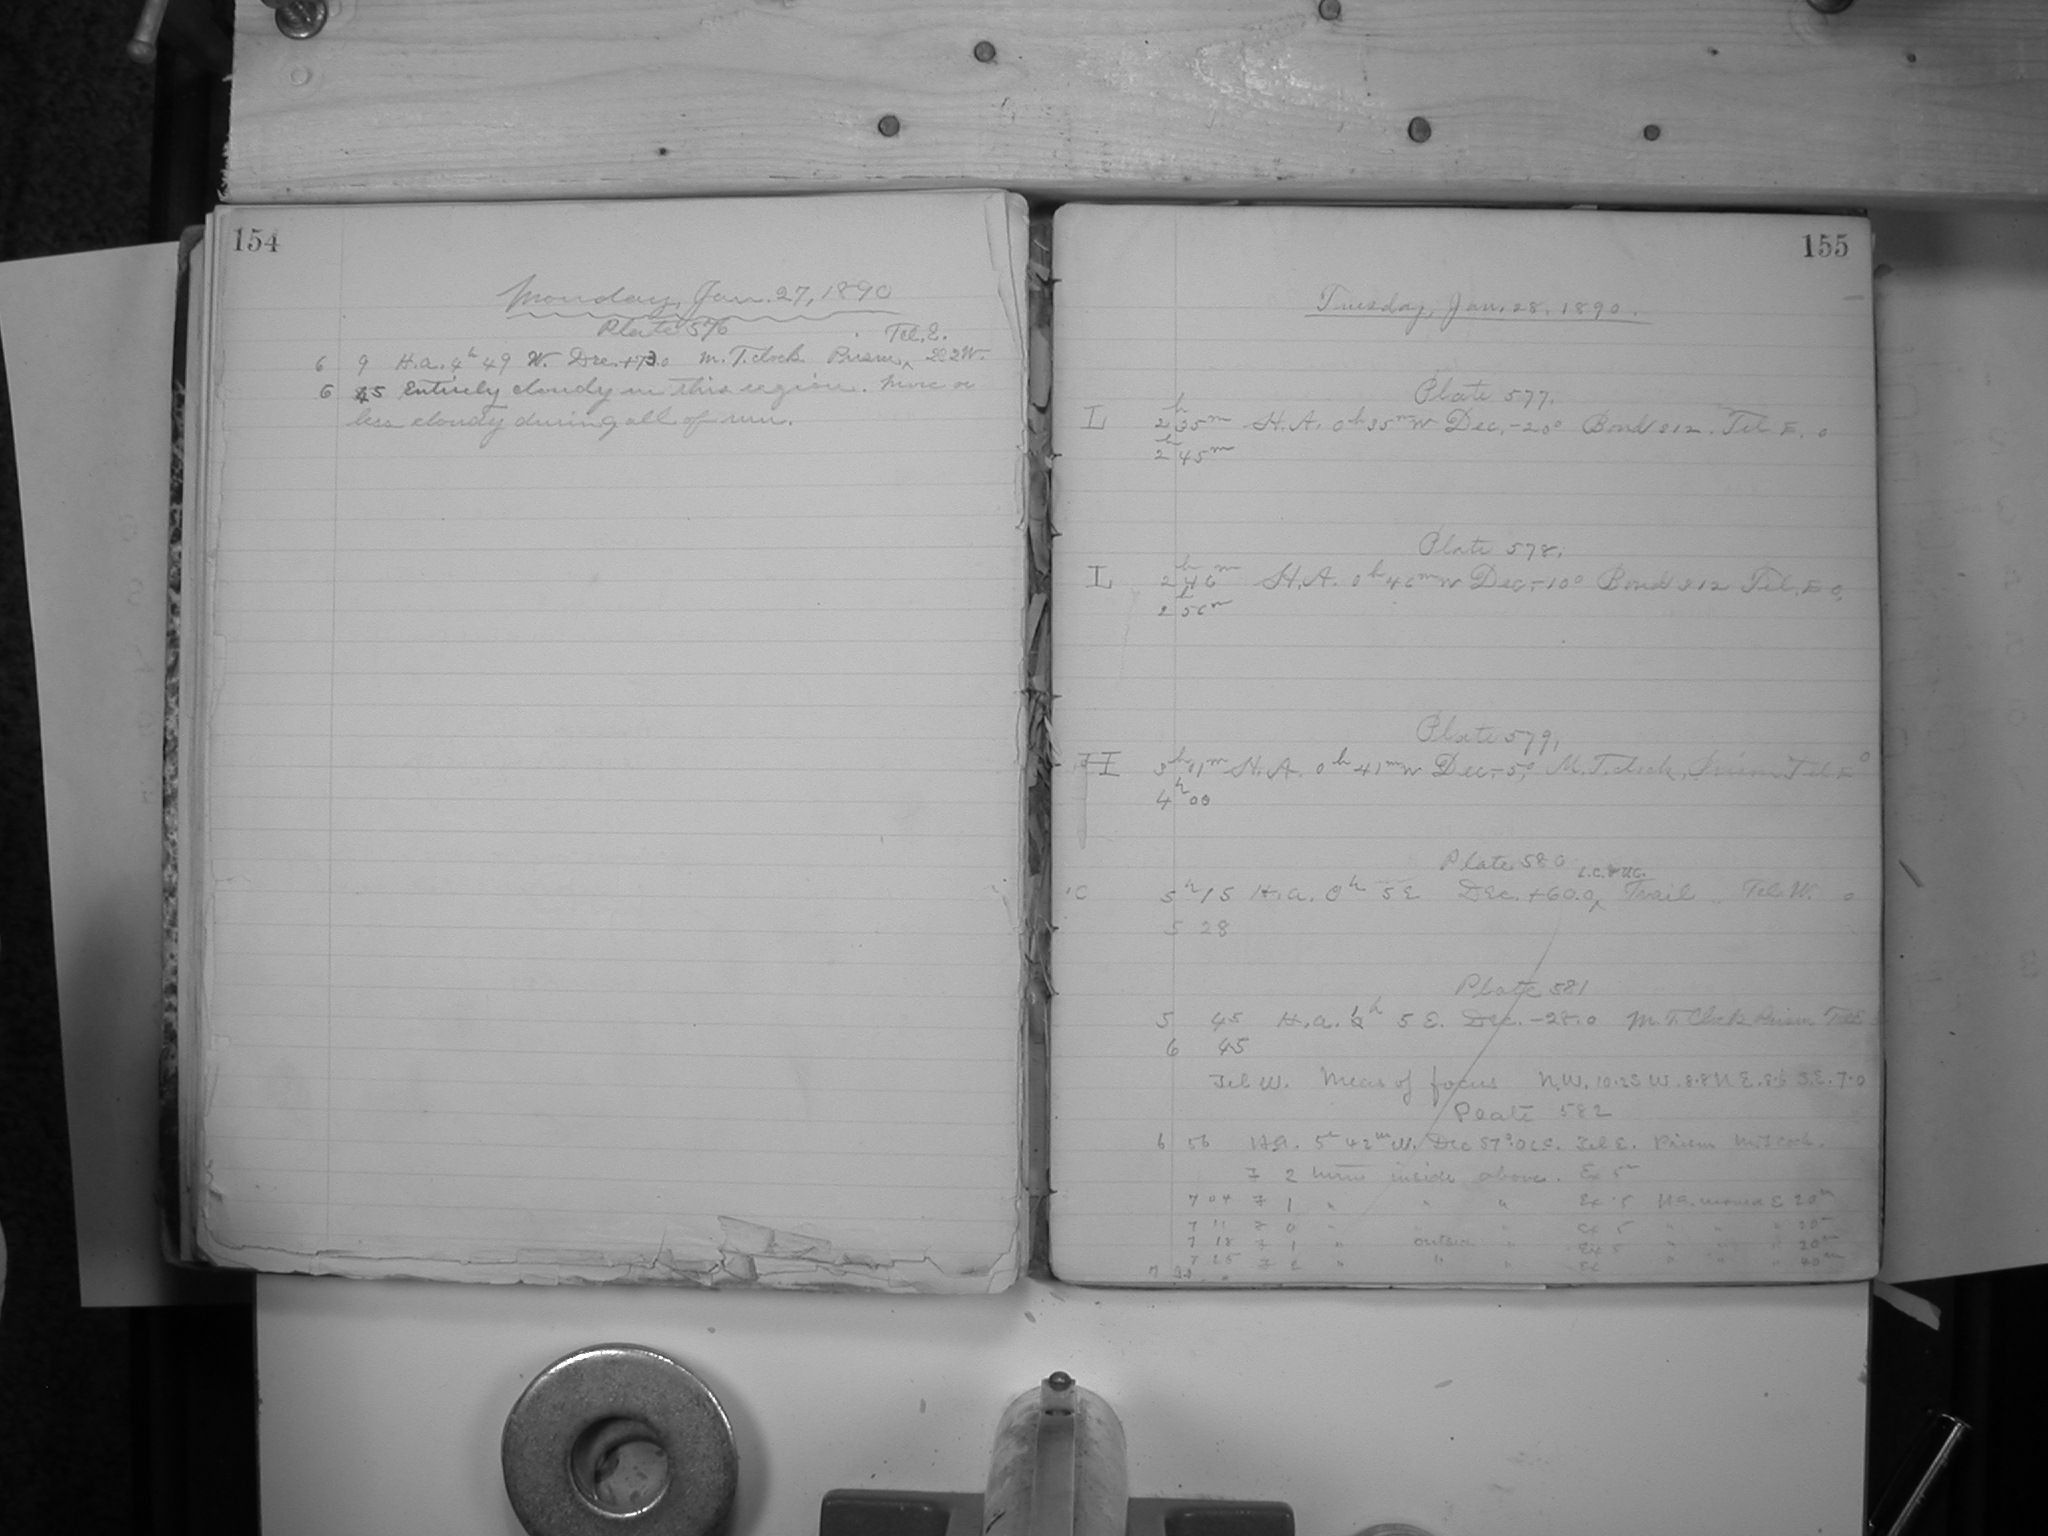 154
Monday, Jan. 27, 1890
Plate 576
Tel. E.
6 9 H.a. 4h 49 W. Dec. +73.0 M. T. clock Prism
6 45 Entirely cloudy in this region. More or
less cloudy during all of run.
155
Tuesday, Jan. 28. 1890.
Plate 577.
I 2h 35m H.A. 0h 35m W Dec. -20° Bond 212. Tel E. 0
2h 45m
Plate 578.
I 2h 46m H.A. 0h 46m W Dec. -10° Bond 212 Tel. E 0
2h 56m
Plate 579.
I 3h 11m H.A. 0h 41m W Dec. -5° M. T. clock, Prism Tel E 0
4h 00
Plate 580
C 5h 15 H.a. 0h 5 E Dec. +60.0 Trail Tel. W. 0
5 28
Plate 581
5 45 H.a. h 5 E. Dec. -28.0 M. T. Clock Prism Tel E
6 45
Tel W. Meas of focus N.W. 10.2 S.W. 8.8 N.E. 8.5 S.E. 7.0
Plate 582
6 56 H.a. 5h 42m W. Dec 57°.0 Tel E. Prism M.T. clock.
F 2 turns inside above. Ex 5m
7 04 F 1 " " " Ex. 5 H.a. moved E 20m
7 11 F 0 " Ex 5 " " " 20m
7 18 F 1 " outside " Ex 5 " " " 20m
7 25 F 2 " " " Ex " " "